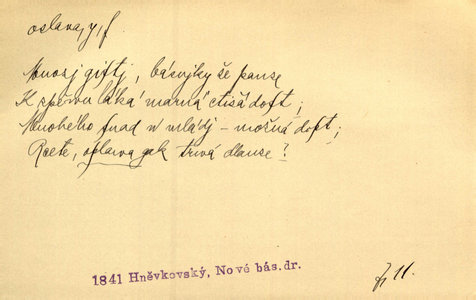 oslava, y, f.
Mnozj giftj, básnjky se panse
K zpěwu láká marná ctižádost;
Mnohého snad w mládj – možná dost;
Rcete, oslawa gak trwá dlause?
1841 Hněvkovský, Nové bás.dr.
11.